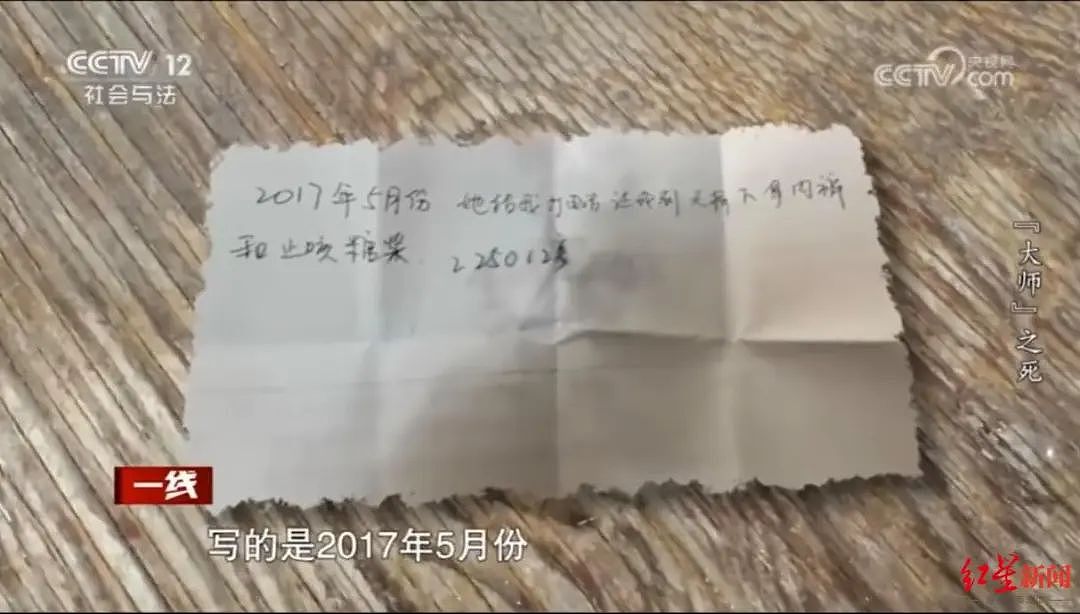 CCTV 12
社会与法
央视网
CCTV.com
2017年5月份 她给我打电话 让我别 下身内裤
和止咳糖浆 2250123
『大师』之死
一线
写的是2017年5月份
红星新闻